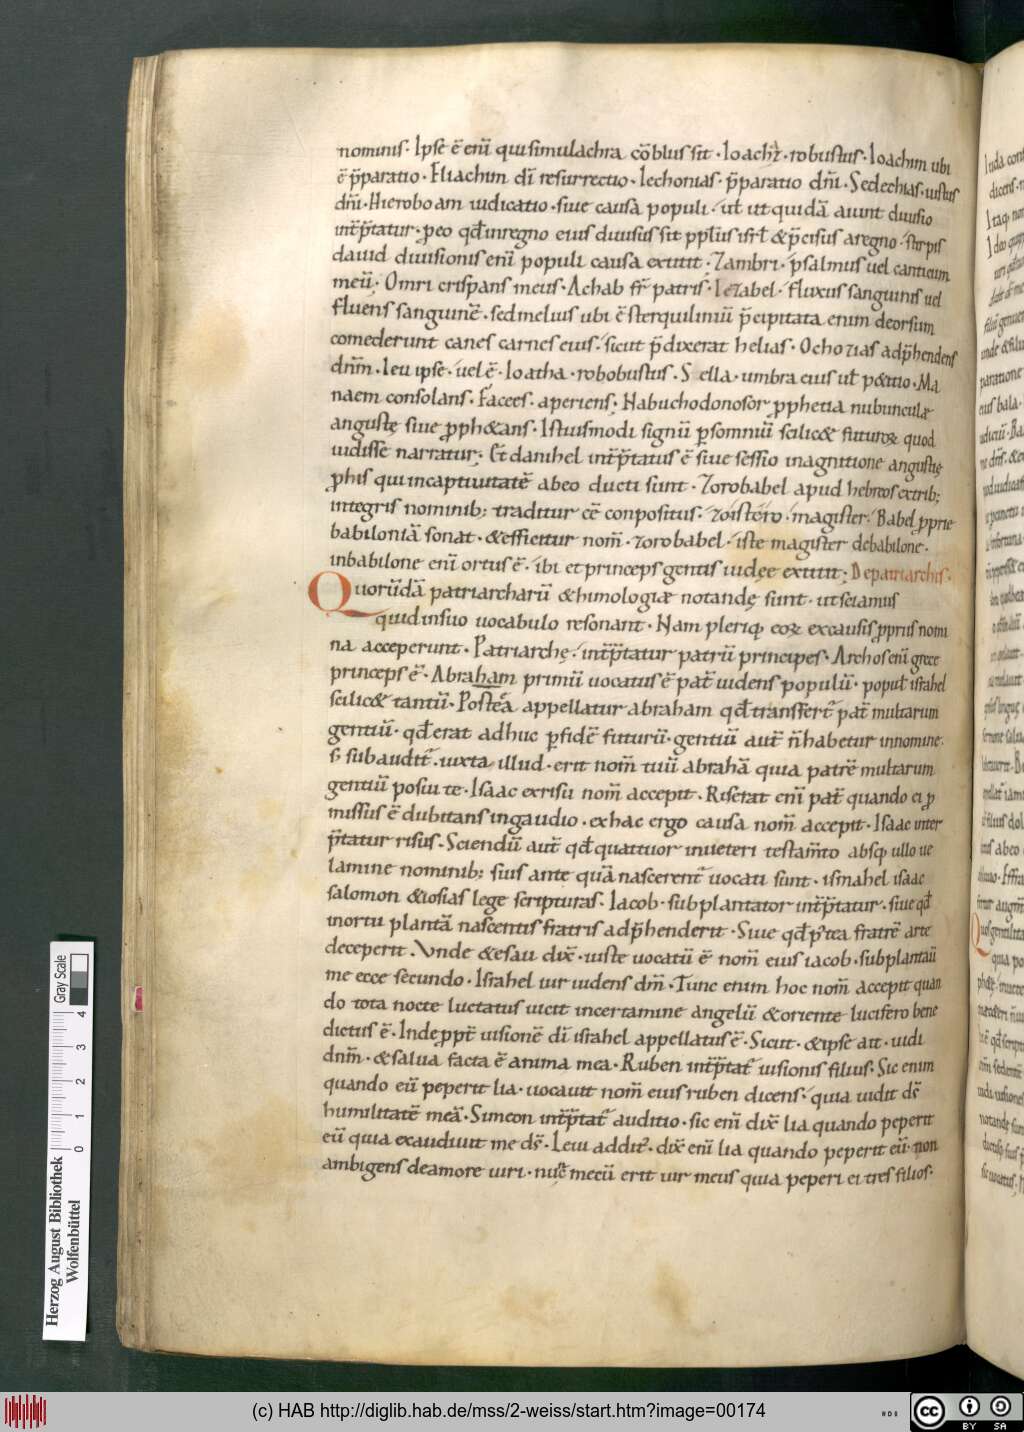 nominis. Ipse ē eni̅ qui simulachra cōbussit. Ioachi̅. robustus. Ioachim ubi
ē p̄paratio. Eliachim di̅ resurrectio. Iechonias. p̄paratio dn̄i. Sedechias. iustus
dn̄i. Hieroboam iudicatio. siue causa populi. ut̄ ut quidā aiunt diuisio
int̄p̄tatur. ꝓeo qd̄ inregno eius diuisus sit ppl̄us isrl̄ & p̄cisus aregno. stirpis
dauid diuisionis eni̅ populi causa extitit. Zambri. psalmus uel canticum
meū. Omri crispans meus. Achab fr̄ patris. Iezabel. fluxus sanguinis uel
fluens sanguinē. sed melius ubi ē sterquiliniū p̄cipitata enim deorsum
comederunt canes carnes eius. sicut p̄dixerat helias. Ochozias adp̄hendens
dn̄m. Ieu ipse. uel ē. Ioatha. robobustus. Sella. umbra eius ut̄ p&itio. Ma
naem consolans. Facees. aperiens. Nabuchodonosor ꝓphetia nubunculæ
angustę siue ꝓph&ans. Istiusmodi signū ꝑsomniū scilic& futuroꝝ quod
uidisse narratur; Et danihel int̄p̄tatus ē siue sessio inagnitione angustię
ꝓphis qui incaptiuitatē abeo ducti sunt. Zorobabel apud hebreos extrib;
integris nominib; traditur cē conpositus. zoistero. magister. Babel ꝓprie
babiloniā sonat. & efficitur nom̄. zorobabel. iste magister debabilone.
inbabilone eni̅ ortus ē. ibi et princeps gentis iudęe extitit; De patriarchis.
Quorūdā patriarcharū &himologiæ notandę sunt. ut sciamus
quid insuo uocabulo resonant. Nam pleriq; eoꝝ excausis ꝓpriis nomi
na acceperunt. Patriarchę. int̄p̄tatur patrū principes. Archos eni̅ grece
princeps ē. Abraham primū uocatus ē pat̄ uidens populū. popul̄ israhel
scilic& tantū. Postea appellatur abraham qd̄ transfert̄ pat̄ multarum
gentiū. qd̄ erat adhuc ꝑfidē futurū. gentiū aut̄ n̄ habetur innomine.
s̄ subaudit̄. iuxta illud. erit nom̄ tuū abrahā quia patrē multarum
gentiū posui te. Isaac exrisu nom̄ accepit. Riserat eni̅ pat̄ quando ei ꝓ
missus ē dubitans ingaudio. ex hac ergo causa nom̄ accepit. Isaac inter
p̄tatur risus. Sciendū aut̄ qd̄ quattuor inueteri testam̄to absq; ullo ue
lamine nominib; suis ante quā nascerent̄ uocati sunt. ismahel isaac
salomon & iosias lege scripturas. Iacob. subplantator int̄p̄tatur. siue qd̄
inortu plantā nascentis fratris adp̄henderit. Siue qd̄ postea fratrē arte
deceperit. Vnde & esau dix̄. iuste uocatū ē nom̄ eius iacob. subplantauit
me ecce secundo. Israhel uir uidens dm̄. Tunc enim hoc nom̄ accepit quan
do tota nocte luctatus uicit incertamine angelū & oriente lucifero bene
dictus ē. Inde ppt̄ uisionē di̅ israhel appellatus ē. Sicut. & ipse ait. uidi
dn̄m. & salua facta ē anima mea. Ruben int̄p̄tat̄ uisionis filius. Sic enim
quando eū peperit lia. uocauit nom̄ eius ruben dicens. quia uidit ds̄
humilitatē meā. Simeon int̄p̄tat̄ auditio. sic eni̅ dix̄ lia quando peperit
eū quia exaudiuit me ds̄. Leui addit̄. dix̄ eni̅ lia quando peperit eū. non
ambigens deamore uiri. nūc mecū erit uir meus quia peperi ei tres filios.
Herzog August Bibliothek
Wolfenbüttel
0 1 2 3 4
Gray Scale
(c) HAB http://diglib.hab.de/mss/2-weiss/start.htm?image=00174
HDB
cc
BY SA